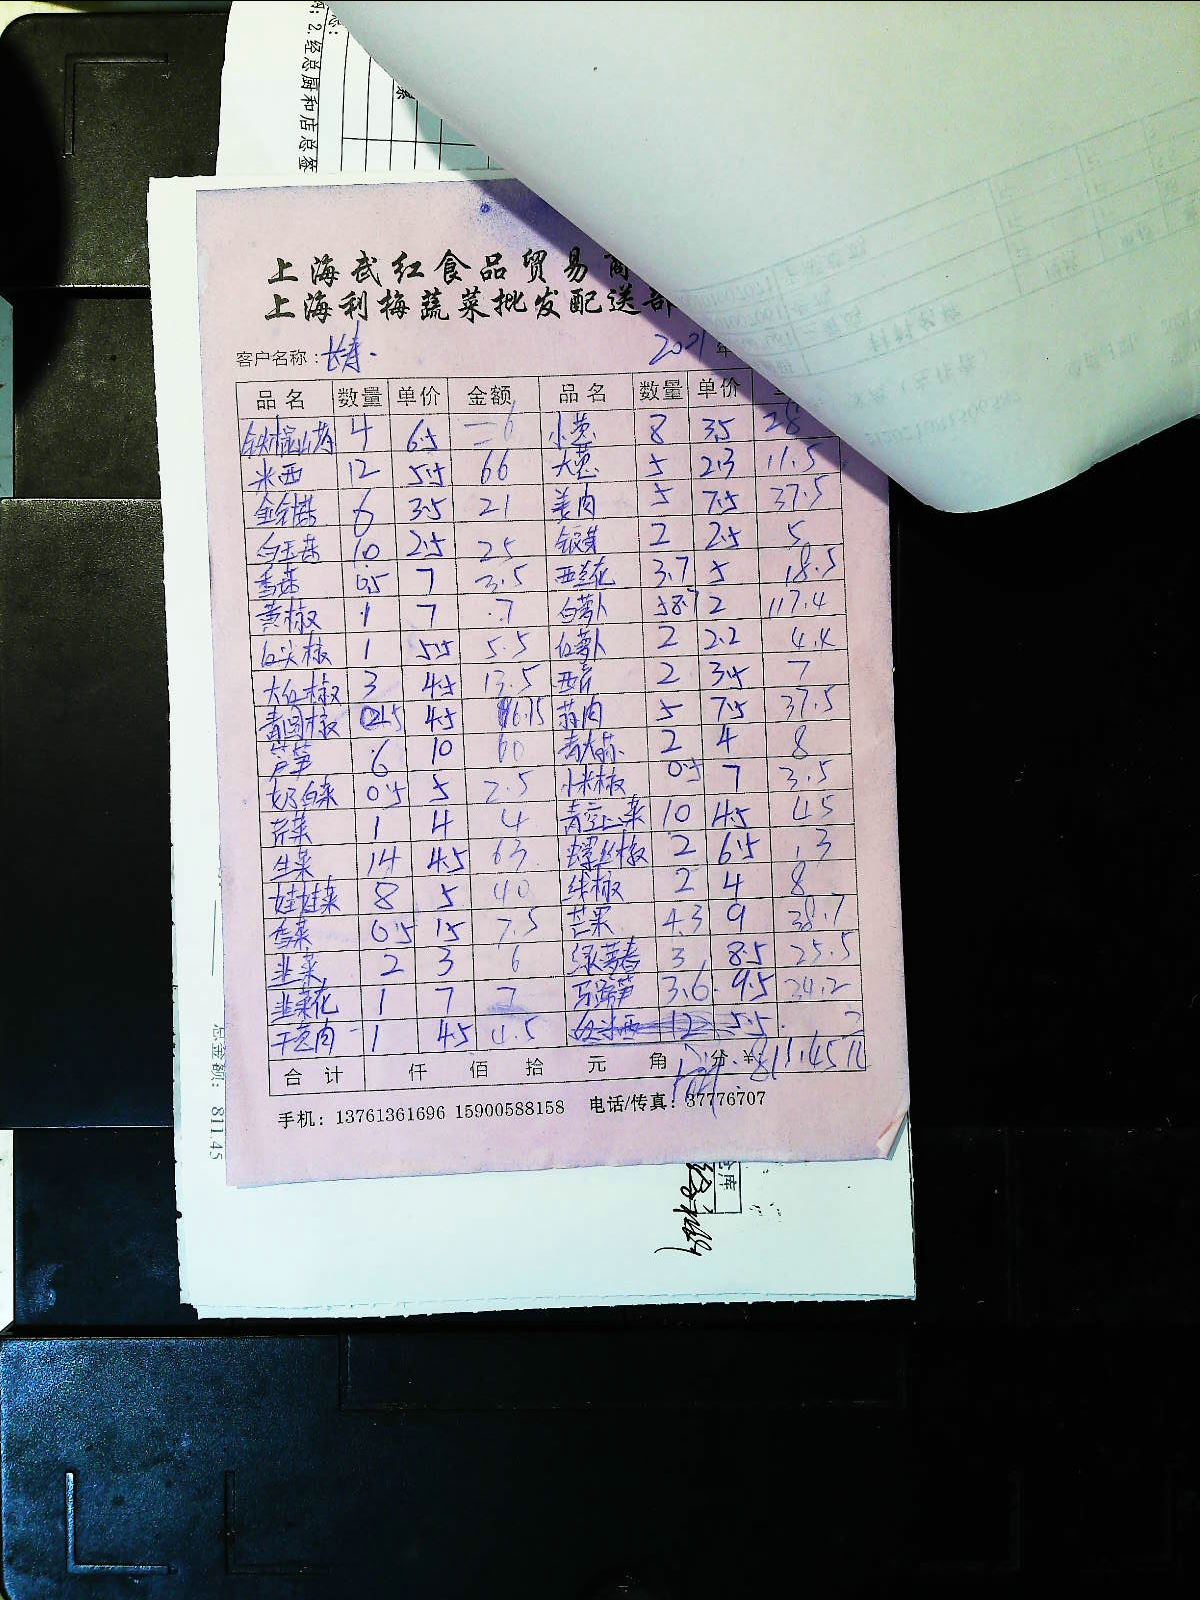 2.经总厨和店总签
上海武红食品贸易商
上海利梅蔬菜批发配送部
客户名称：长寿.
2021年
品名 数量 单价 金额 品名 数量 单价
铁棍山药 4 6.5 26 小葱 8 3.5 28
米西 12 5.5 66 大葱 5 2.3 11.5
金针菇 6 3.5 21 姜肉 5 7.5 37.5
白玉菇 10 2.5 25 银芽 2 2.5 5
香菇 0.5 7 3.5 西兰花 3.7 5 18.5
黄椒 1 7 7 白萝卜 58.7 2 117.4
红尖椒 1 5.5 5.5 红萝卜 2 2.2 4.4
大红椒 3 4.5 13.5 西芹 2 3.5 7
青圆椒 4.5 蒜肉 5 7.5 37.5
芦笋 6 10 60 青大蒜 2 4 8
奶白菜 0.5 5 2.5 小米椒 0.5 7 3.5
芹菜 1 4 4 青空心菜 10 4.5 45
生菜 14 4.5 63 螺丝椒 2 6.5 13
娃娃菜 8 5 40 线椒 2 4 8
香菜 0.5 15 7.5 芒果 4.3 9 38.7
韭菜 2 3 6 绿萝春 3 8.5 25.5
韭菜花 1 7 7 马蹄笋 3.6 9.5 34.2
干葱肉 1 4.5 4.5 12 5.5
合计 仟 佰 拾 元 角 分 ¥: 811.45元
手机：13761361696 15900588158 电话/传真：37776707
总金额：811.45
仓库